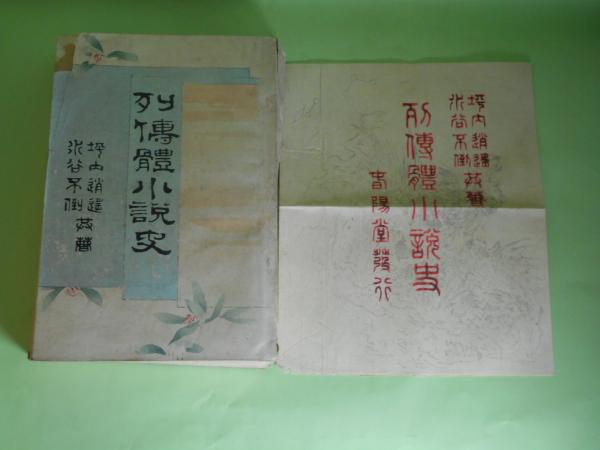 列傳體小說史
坪内逍遥
水谷不倒
共著
坪内逍遥
水谷不倒
共著
列傳體小說史
春陽堂發行